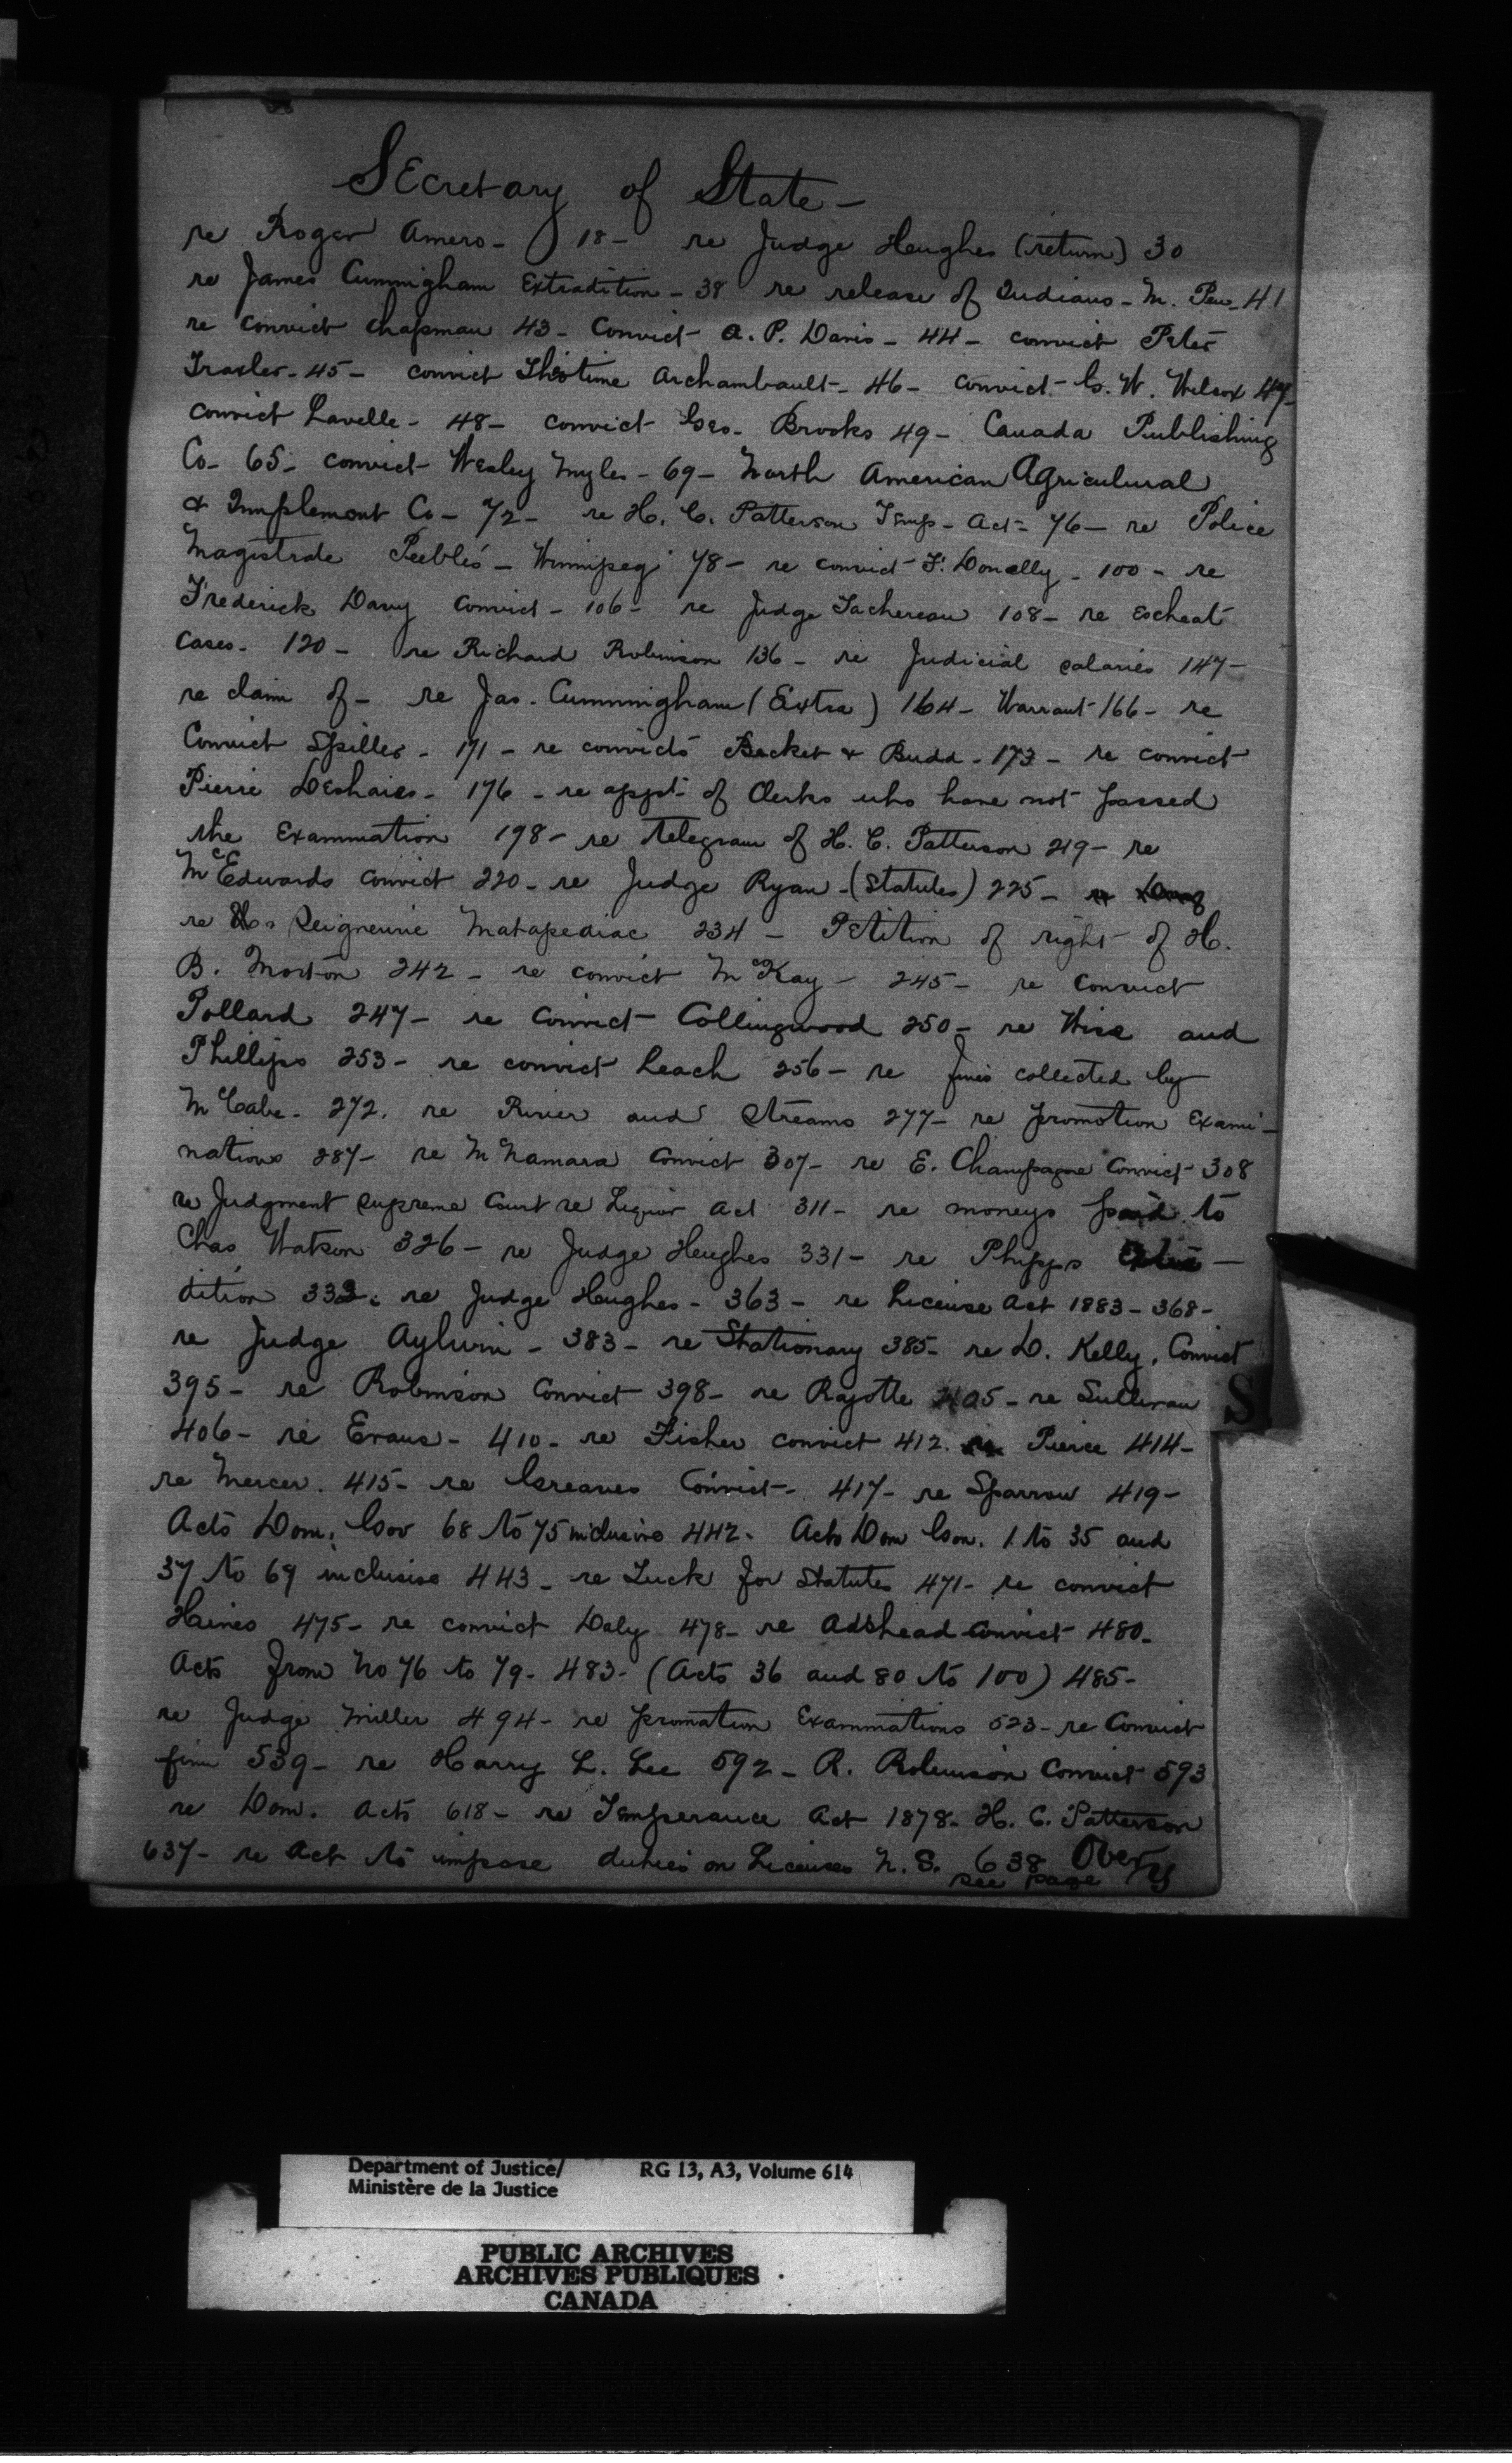 Secretary of State -
re Roger Amero - 18 - re Judge Hughes (return) 30
re James Cunningham Extradition - 38 re release of Indians - M. Pen - 41
re convict Chapman 43 - Convict A. P. Davis - 44 - convict Peter
Traxler - 45 - convict Théotime Archambault - 46 - convict G. W. Wilcox 47 -
convict Lavelle - 48 - convict Geo. Brooks 49 - Canada Publishing
Co - 65 - convict Wesley Myles - 69 - North American Agricultural
& Implement Co - 72 - re H. C. Patterson Temp - Act - 76 - re Police
Magistrate Peebles - Winnipeg 78 - re convict F. Donelly - 100 - re
Frederick Davy convict - 106 - re Judge Tachereau 108 - re escheat
cases - 120 - re Richard Robinson 136 - re Judicial salaries 147 -
re claim of - re Jas. Cunningham (Extra) 164 - Warrant 166 - re
Convict Spiller - 171 - re convicts Becket & Budd - 173 - re convict
Pierre Deshaies - 176 - re appt of Clerks who have not passed
the Examination 198 - re telegram of H. C. Patterson 219 - re
McEdwards convict 220 - re Judge Ryan - (Statutes) 225 -
re Seigneurie Matapediac 234 - Petition of right of H.
B. Morton 242 - re convict McKay - 245 - re convict
Pollard 247 - re Convict Collingwood 250 - re Wise and
Phillips 253 - re convict Leach 256 - re fines collected by
McCabe - 272. re River and Streams 277 - re promotion Exami-
nations 287 - re McNamara Convict 307 - re E. Champagne Convict 308
re Judgment Supreme Court re Liquor Act 311 - re moneys paid to
Chas Watson 326 - re Judge Hughes 331 - re Phipps Extra -
dition 333. re Judge Hughes - 363 - re License Act 1883 - 368 -
re Judge Aylwin - 383 - re Stationary 385 - re D. Kelly, Convict
395 - re Robinson Convict 398 - re Rajotte 405 - re Sullivan
406 - re Evans - 410 - re Fisher convict 412. re Pierce 414 -
re Mercer. 415 - re Greaves Convict - 417 - re Sparrow 419 -
Acts Dom. Gov 68 to 75 inclusive 442 - Acts Dom Gov. 1 to 35 and
37 to 69 inclusive 443 - re Luck for Statutes 471 - re convict
Haines 475 - re convict Daly 478 - re Adshead convict 480 -
Acts from No 76 to 79 - 483 - (Acts 36 and 80 to 100) 485 -
re Judge Miller 494 - re promotion Examinations 523 - re Convict
539 - re Harry L. Lee 592 - R. Robinson Convict 593
re Dom. Acts 618 - re Temperance Act 1878 - H. C. Patterson
637 - re Act to impose duties on Licenses N. S. 638 Over
see page
S
Department of Justice/ RG 13, A3, Volume 614
Ministère de la Justice
PUBLIC ARCHIVES
ARCHIVES PUBLIQUES
CANADA